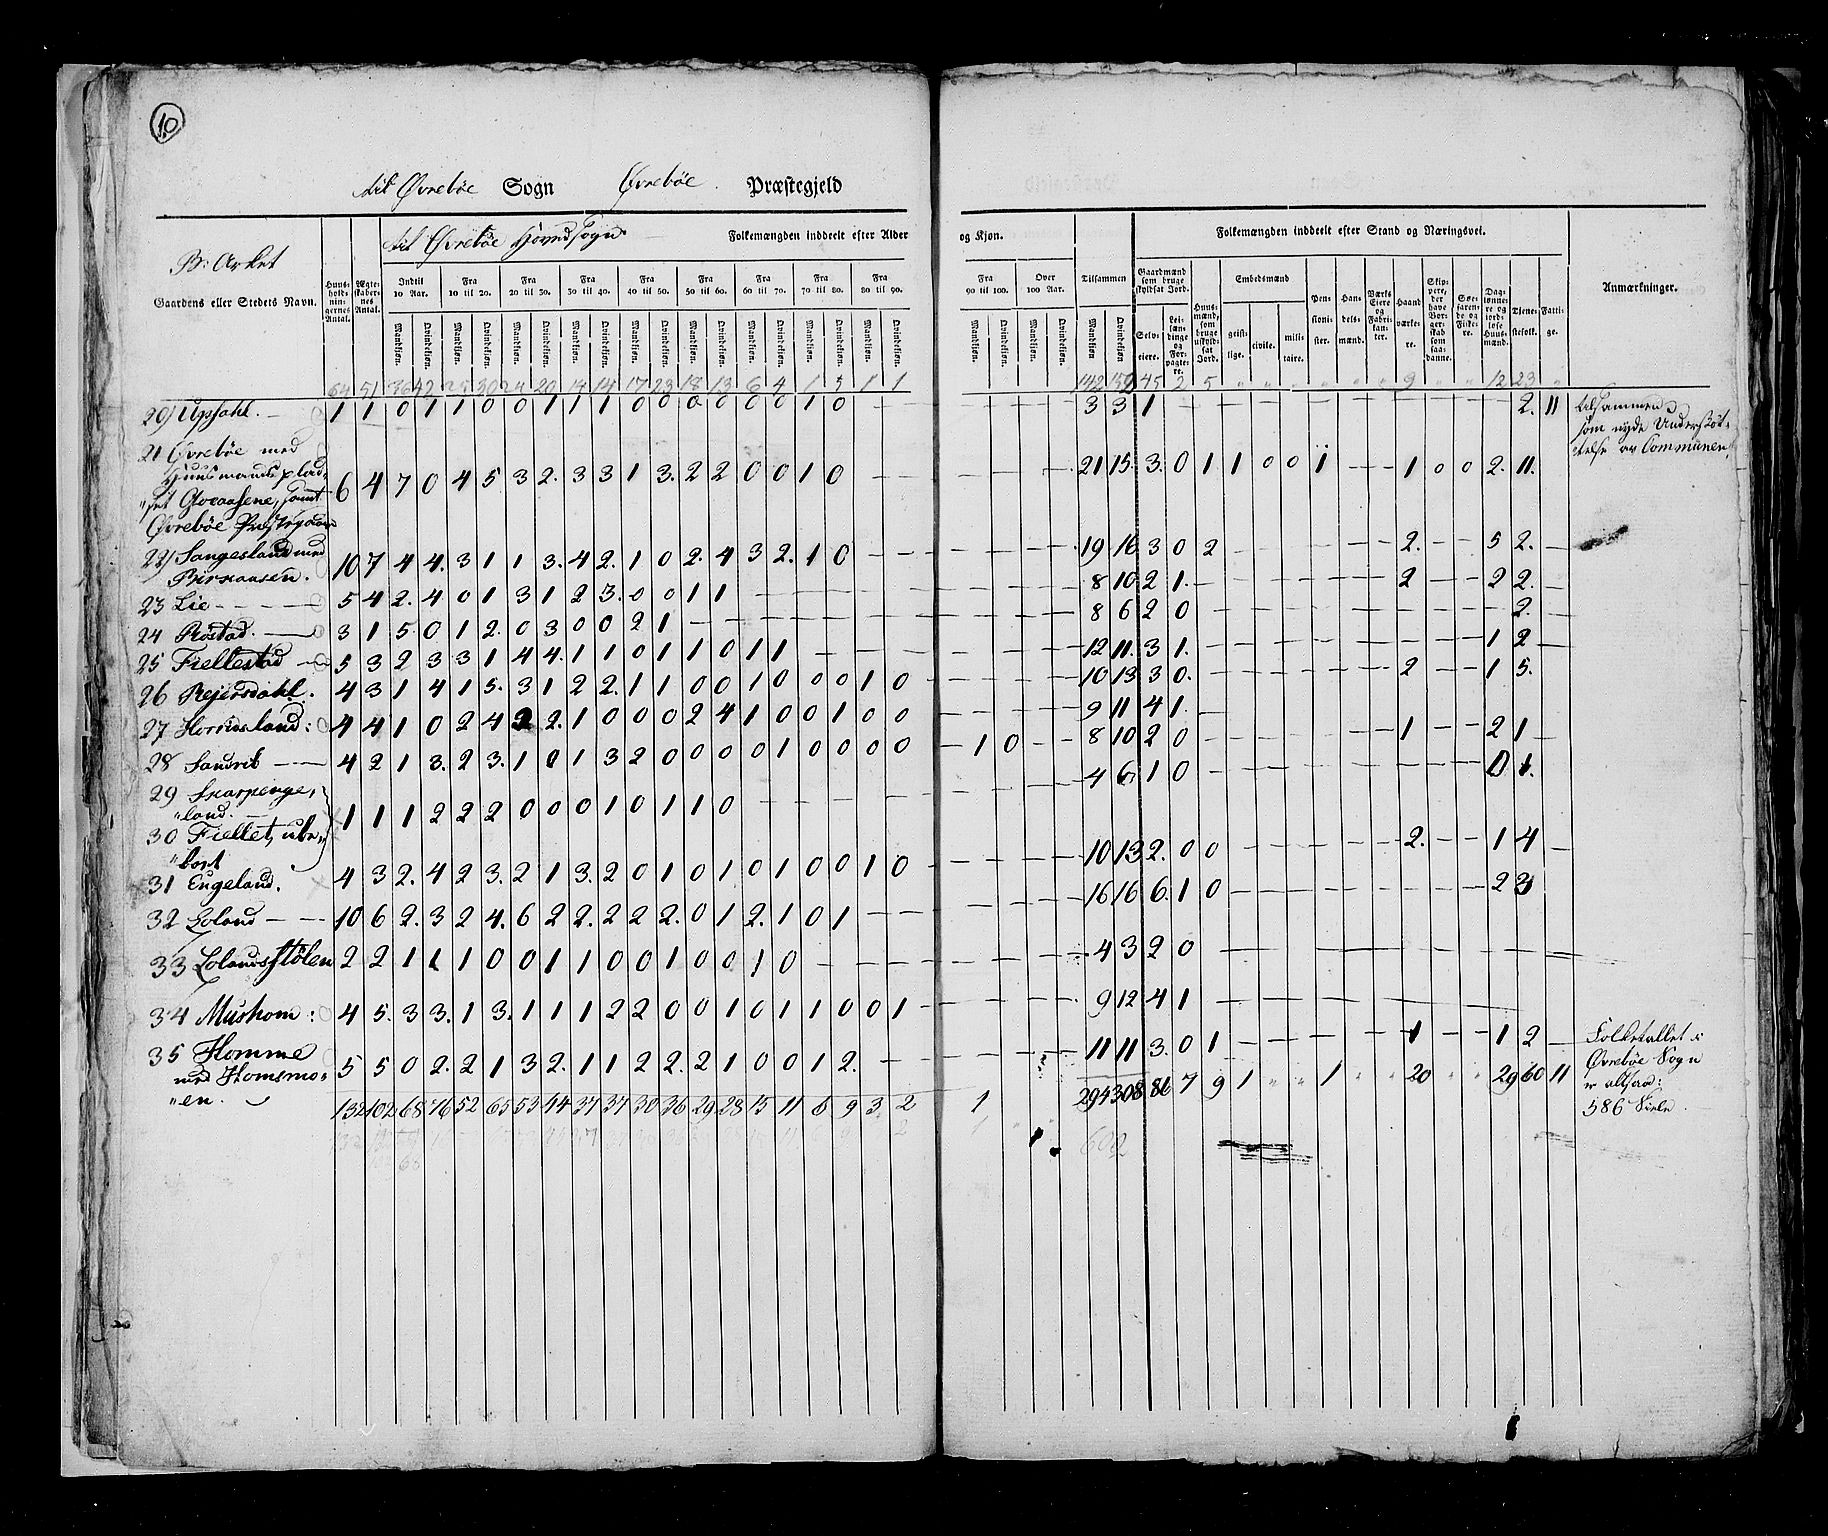 10
til Øvrebøe Sogn Øvrebøe Præstegjeld
B: Arket
til Øvrebøe Hovedsogn Folkemængden inddeelt efter Alder og Kjøn. Tilsammen Folkemængden inddeelt efter Stand og Næringsvei.
Gaardens eller Stedets Navn. Huusholdningernes Antal. Ægteskabernes Antal. Indtil 10 Aar. Fra 10 til 20. Fra 20 til 30. Fra 30 til 40. Fra 40 til 50. Fra 50 til 60. Fra 60 til 70. Fra 70 til 80. Fra 80 til 90. Fra 90 til 100. Over 100 Aar.
Mandkjøn. Qvindekjøn. Mandkjøn. Qvindekjøn. Mandkjøn. Qvindekjøn. Mandkjøn. Qvindekjøn. Mandkjøn. Qvindekjøn. Mandkjøn. Qvindekjøn. Mandkjøn. Qvindekjøn. Mandkjøn. Qvindekjøn. Mandkjøn. Qvindekjøn. Mandkjøn. Qvindekjøn. Mandkjøn. Qvindekjøn. Mandkjøn. Qvindekjøn.
Gaardmænd som bruge skyldsat Jord. Selveiere. Leilændinge og Forpagtere. Huusmænd, som bruge uskyldsat Jord. Embedsmænd geistlige. civile. militaire. Pensionister. Handelsmænd. Værks Eiere og Fabrikanter. Haandværkere. Skippere, der have Borgerskab som saadanne. Søefarende og Fiskere. Daglønnere og jordløse Huusmænd. Tjenestefolk. Fattige. Anmærkninger.
64 51 36 42 25 30 24 20 14 14 17 23 18 13 6 4 1 5 1 1 142 159 45 2 5 " " " " " " 9 " " 12 23 "
20) Upsahl. 1 1 0 1 1 0 0 1 1 1 0 0 0 0 0 0 1 0 3 3 1 2. 11 tilsammen
som nyde Understøt-
telse av Communen.
21 Øvrebøe med
Huusmandsplad-
"set Gloeaasene, samt 6 4 7 0 4 5 3 2. 3 3 1 3. 2 2 0 0 1 0 21 15. 3. 0 1 1 0 0 1 1 0 0 2. 11.
Øvrebøe Præstegaard
22) Sangesland med 10 7 4 4. 3 1 1 3. 4 2. 1 0 2. 4 3 2. 1 0 19 16 3 0 2 2. 5 2.
23 Lie 5 4 2. 4 0 1 3 1 2 3. 0 0 1 1 8 10 2 1. 2 2 2.
24 Røstad. 3 1 5. 0 1 2. 0 3 0 0 2 1 8 6 2 0 2.
25 Fiellestad 5 3 2 3 3 1 4 4. 1 1 0 1 1 0 1 1 12 11. 3 1. 1 2
26 Reiersdahl. 4 3 1 4 1 5. 3 1 2 2. 1 1 0 0 1 0 0 0 1 0 10 13 3 0. 2 1 5.
27 Horrisland: 4 4 1 0 2 4 2 2. 1 0 0 0 2 4 1 0 0 1 0 0 9 11 4 1.
28 Sandrib 4 2 1 3. 2 3. 1 0 1 3 2 0 0 0 0 1 0 0 0 0 1 0 8 10 2 0 1 2 1
29 Skarpenge,
"land.
30 Fiellet, ube- 1 1 1 2 2 2 0 0 0 1 0 1 1 0 4 6. 1 0 0 1.
"boet
31 Engeland. 4 3 2. 4 2 3. 2 1 3. 2 0 1 0 1 0 1 0 0 1 0 10 13 2. 0 0 2. 1 4
32 Loland 10 6 2. 3 2 4. 6 2 2. 2 2 2. 0 1 2. 1 0 1 16 16 6. 1 0 2 3
33 Lolandsstølen 2 2 1 1 1 0 0 1 1 0 0 1 0 0 1 0 4 3 2 0
34 Mushom: 4 5. 3 3. 1 3. 1 1 1 2 2 0 0 1 0 1 1 0 0 1 9 12 4 1
35 Homme
med Homsmo- 5 5 0 2. 2 1 3 2. 1 1 2 2. 2 1 0 0 1 2. 11 11 3. 0 1 1 1 2
"en.
132 102 68 76 52 65 53 44 37 37 30 36 29 28 15 11 6 9 3. 2 1 294 308 86 7 9 1 " " 1 " " 20 " " 29 60 11
602
Folketallet i
Øvrebøe Sogn
er altsaa:
586 Siele